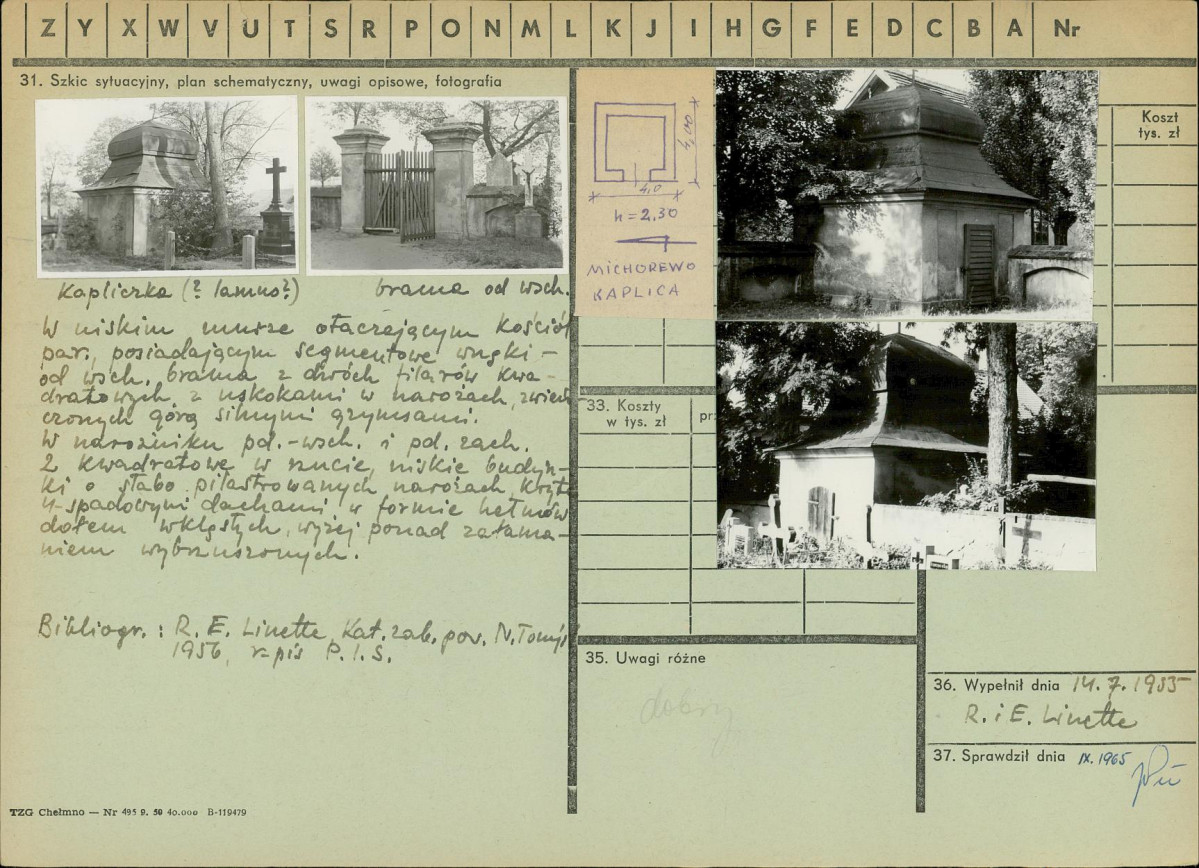 Z Y X W V U T S R P O N M L K J I H G F E D C B A Nr
31. Szkic sytuacyjny, plan schematyczny, uwagi opisowe, fotografia
Kapliczka (? lamus?)
brama od wsch.
W niskim murze otaczającym kościół
par., posiadającym segmentowe wnęki –
od wsch. brama z dwóch filarów kwa-
dratowych z uskokami w narożach, zwień
czonych górą silnymi gzymsami.
W narożniku pd.-wsch. i pd. zach.
2 kwadratowe w rzucie, niskie budyn-
ki o słabo pilastrowanych narożach, kryte
4-spadowymi dachami w formie hełmów
dołem wklęsłych, wyżej ponad załama-
niem wybrzuszonych.
Bibliogr.: R. E. Linette, Kat. zab. pow. N. Tomyśl
1956, r-pis P.I.S.
TZG Chełmno — Nr 495 9. 59 40.000 B-119479
4,00
4,0
h = 2,30
MICHORZEWO
KAPLICA
Koszt
tys. zł
33. Koszty
w tys. zł
pr
35. Uwagi różne
dobry
36. Wypełnił dnia 14.7.1955
R. i E. Linette
37. Sprawdził dnia IX. 1965